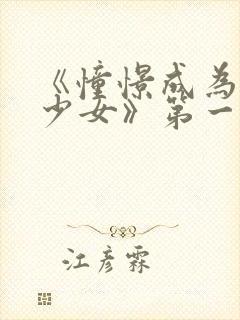 《憧憬成为
少女》第一
江彦霖